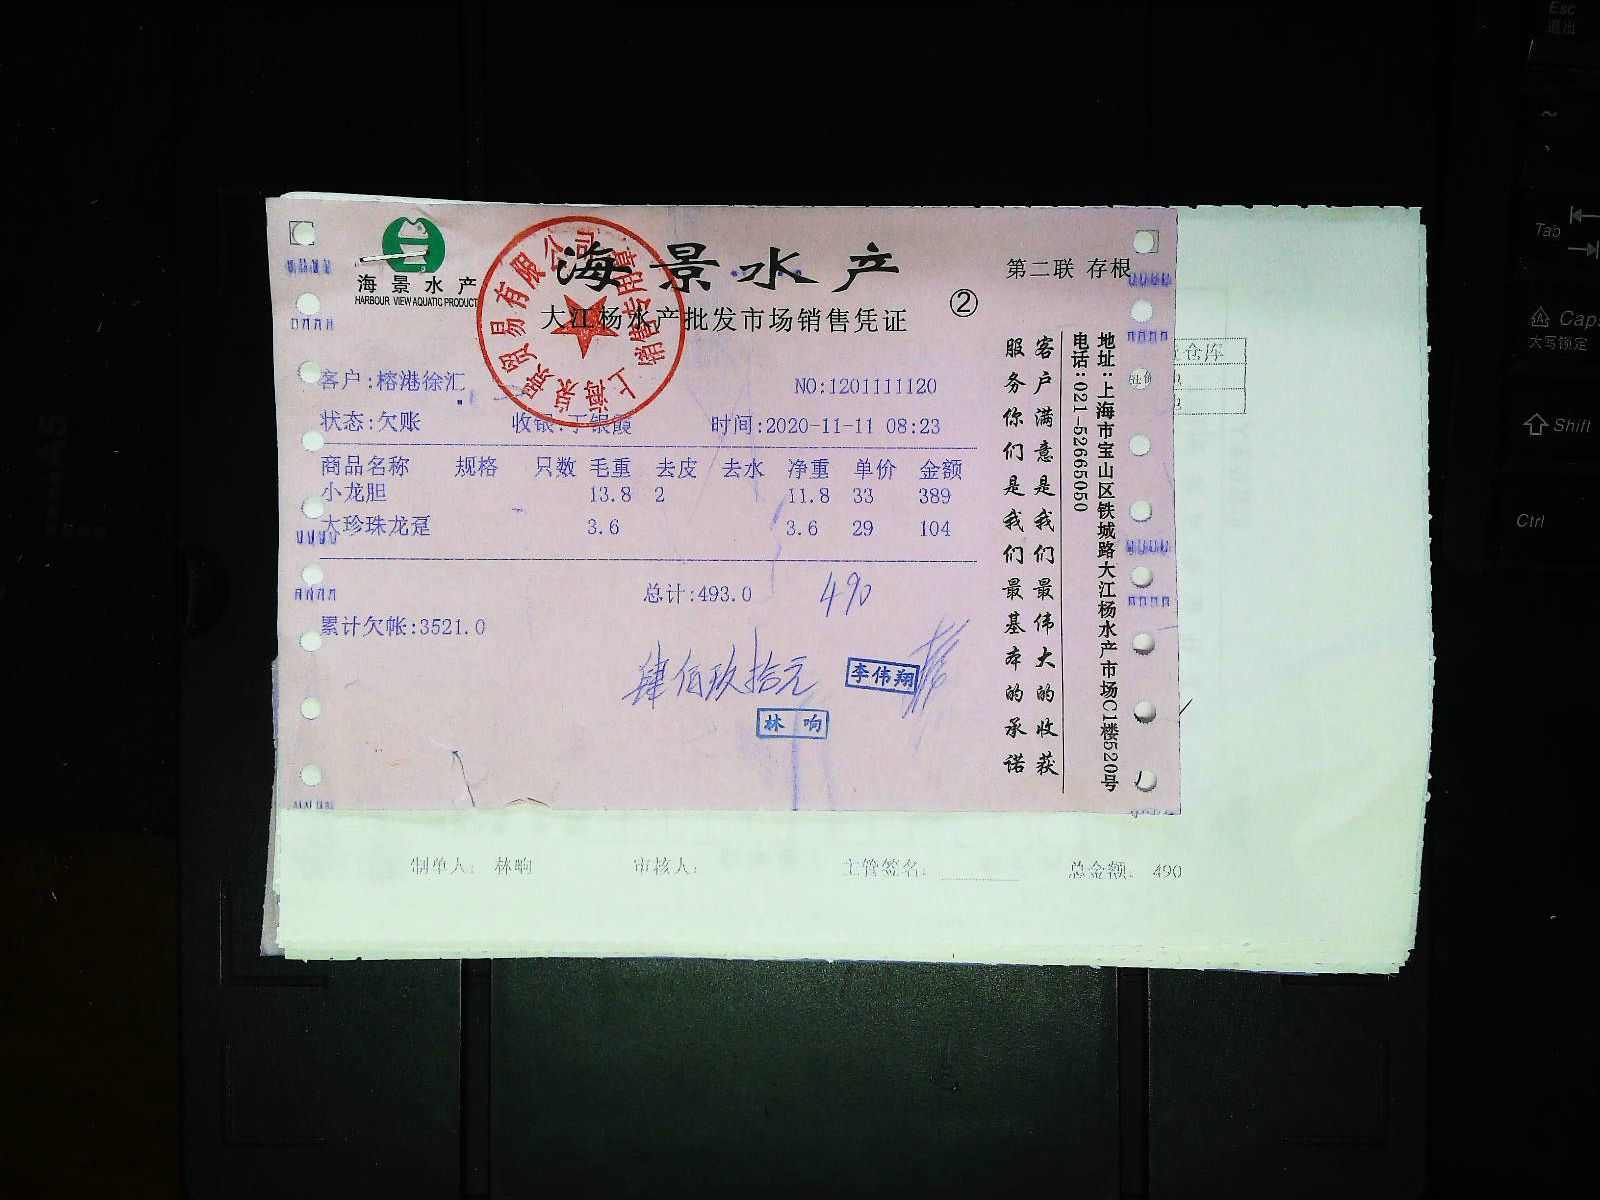 海景水产
HARBOUR VIEW AQUATIC PRODUCT
海景水产
第二联 存根
大江杨水产批发市场销售凭证
②
客户:榕港徐汇
NO:1201111120
状态:欠账 收银:丁银霞 时间:2020-11-11 08:23
商品名称 规格 只数 毛重 去皮 去水 净重 单价 金额
小龙胆 13.8 2 11.8 33 389
大珍珠龙趸 3.6 3.6 29 104
总计:493.0 490
累计欠帐:3521.0
肆佰玖拾元
李伟翔
林响
客户满意是我们最伟大的收获
服务你们是我们最基本的承诺
地址:上海市宝山区铁城路大江杨水产市场C1楼520号
电话:021-52665050
销售专用章
仓库
制单人: 林响 审核人: 主管签名: 总金额: 490
Esc
退出
~
Tab
Caps
大写锁定
Shift
Ctrl